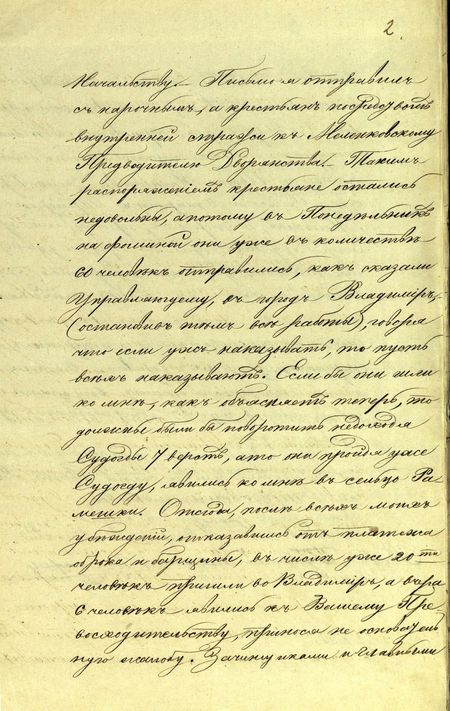 2.
Начальству. — Письмо я отправилъ
съ нарочнымъ, а крестьянъ посредствомъ
внутренней стражи къ Меленковскому
Предводителю Дворянства. Такимъ
распоряженіемъ крестьяне остались
недовольны, а потому въ Понедѣльникъ
на Фоминой они уже въ количествѣ
60 человѣкъ отправились, какъ сказали
Управляющему, въ городъ Владиміръ,
(остановивъ тѣмъ всѣ работы), говоря
что если ужъ наказывать, то пусть
всѣхъ наказываютъ. Если бы они шли
ко мнѣ, какъ объясняетъ теперь, то
должны были бы поворотить недоходя
Судогды 7 верстъ, а то они пройдя уже
Судогду, явились ко мнѣ въ сельцо Ра-
мешки. Отсюда, послѣ всѣхъ моихъ
убѣжденій, отказавшись отъ платежа
оброка и барщины, въ числѣ уже 20ти
человѣкъ пришли во Владиміръ, а вчера
6 человѣкъ явились къ Вашему Пре-
восходительству, принося не основатель-
ную жалобу. Зачинщиками и главными